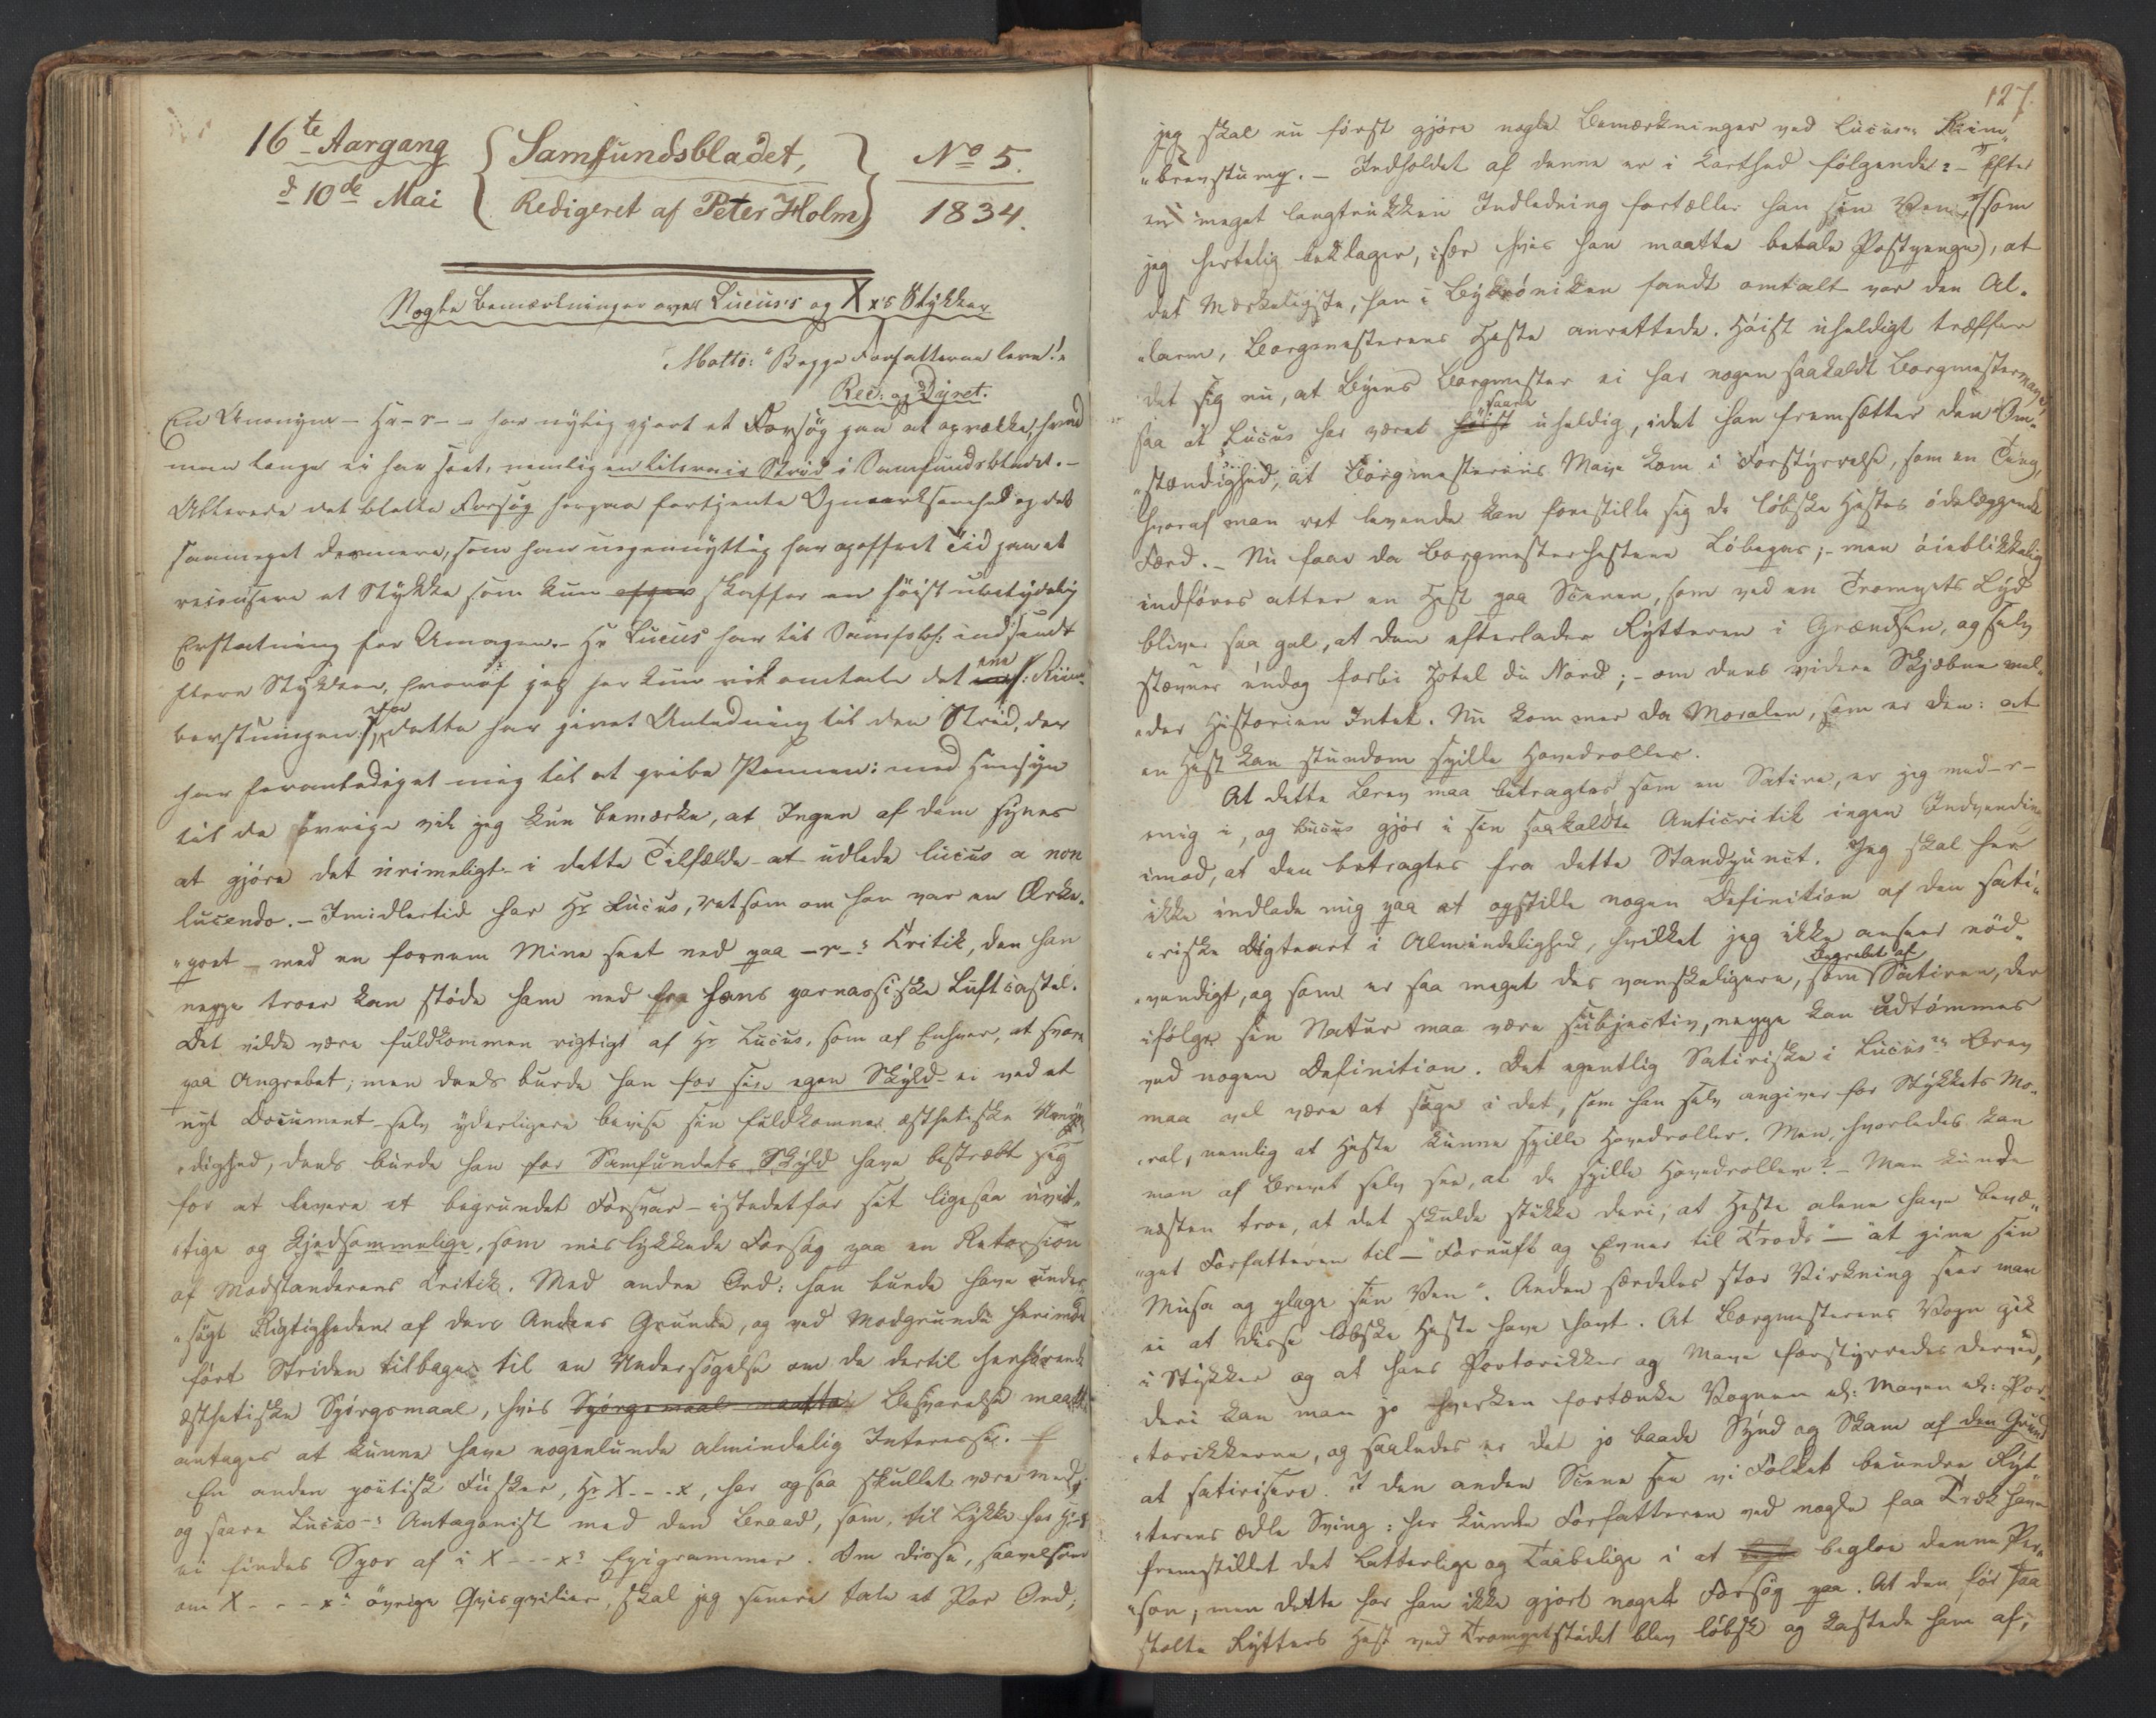 16te Aargang
d 10de Mai
Samfundsbladet,
Redigeret af Peter Holm
No 5.
1834.
Nogle Bemærkninger over Lucus's og X x's Stykker
Motto: "Begge Forfatterne leve!"
Red: og Dyret.
En Anonym - Hr -r- - har nylig gjort et Forsøg paa at opvække, hvad
man længe ei har seet, nemlig en literair Strid i Samfundsbladet. -
Allerede det blotte Forsøg herpaa fortjente Opmærksomhed og det
saameget desmere, som han uegennyttig har opoffret Tid paa at
recensere et Stykke som kun skaffer en høist ubetydelig
Erstatning for Umagen. - Hr Lucus har til Samfbl: indsendt
flere Stykker, hvoraf jeg her kun vil omtale det ene : Riim-
brevstumpen; dette har givet Anledning til den Strid, der
har foranlediget mig til at gribe Pennen: med Hensyn
til de øvrige vil jeg kun bemærke, at Ingen af dem synes
at gjøre det urimeligt - i dette Tilfælde - at udlede lucus a non
lucendo. - Imidlertid har Hr Lucus, ret som om han var en Ærke-
poet - med en fornem Mine seet ned paa -r-s Kritik, den han
neppe troer kan støde ham ned fra hans parnassiske Luftcastel.
Det vilde være fuldkommen rigtigt af Hr Lucus, som af Enhver, at svare
paa Angrebet; men deels burde han for sin egen Skyld - ei ved et
nyt Document selv yderligere bevise sin fuldkomne æsthetiske Umyn-
dighed, deels burde han for Samfundets Skyld have bestræbt sig
for at levere et begrundet Forsvar - istedetfor sit ligesaa uvit-
tige og kjedsommelige, som mislykkede Forsøg paa en Retorsion
af Modstanderens Kritik. Med andre Ord: han burde have under-
søgt Rigtigheden af den Andens Grunde, og ved Modgrunde herimod
ført Striden tilbage til en Undersøgelse om de dertil henhørende
æsthetiske Spørgsmaal, hvis Spørgsmaal maatte Besvarelse maatte
antages at kunne have nogenlunde almindelig Interesse. -
En anden poëtisk Fusker, Hr X - - - x, har ogsaa skullet være med,
og svare Lucus-s Antagonist med den Braad, som, til Lykke for Hr -r-
ei findes Spor af i X - - - x's Epigrammer. Om disse, saavelsom
om X - - - x's øvrige Qvisqvilier, skal jeg senere tale et Par Ord;
127.
jeg skal nu først gjøre nogle Bemærkninger ved Lucus's Riim-
brevstump. - Indholdet af denne er i Korthed følgende: - Efter
en meget langtrukken Indledning fortæller han sin Ven, (som
jeg hertelig beklager, især hvis han maatte betale Postpenge), at
det Mærkeligste, han i Bykrøniken fandt omtalt var den Al-
larm, Borgmesterens Heste anrettede. Høist uheldigt træffer
det sig nu, at Byens Borgmester ei har nogen saakaldt Borgmestermave,
saa at Lucus har været høist saare uheldig, idet han fremsætter den Om-
stændighed, at Borgmesterens Mave kom i Forstyrrelse, som en Ting,
hvoraf man ret levende kan forestille sig de løbske Hestes ødelæggende
Færd. - Nu faae da Borgmesterhestene Løbepas; - men øieblikkelig
indføres atter en Hest paa Scenen, som ved en Trompets Lyd
bliver saa gal, at den efterlader Rytteren i Grændsen, og selv
stævner endog forbi Hotel du Nord; - om dens videre Skjæbne mel-
der Historien Intet. Nu kommer da Moralen, som er den: at
en Hest kan stundom spille Hovedroller.
At dette Brev maa betragtes som en Satire, er jeg med -r-
enig i, og Lucus gjør i sin saakaldte Anticritik ingen Indvending
imod, at den betragtes fra dette Standpunct. Jeg skal her
ikke indlade mig paa at opstille nogen Definition af den sati-
riske Digteart i Almindelighed, hvilket jeg ikke anseer nød-
vendigt, og som er saa meget des vanskeligere, som Begrebet af Satiren, der
ifølge sin Natur maa være subjectiv, neppe kan udtømmes
ved nogen Definition. Det egentlig Satiriske i Lucus's Brev
maa vel være at søge i det, som han selv angiver for Stykkets Mo-
ral, nemlig at Heste kunne spille Hovedroller. Men, hvorledes kan
man af Brevet selv see, at de spille Hovedrollen? - Man kunde
næsten troe, at det skulde stikke deri, at Heste alene have bevæ-
get Forfatteren til - "Fornuft og Evner til Trods" - "at pine sin
Musa og plage sin Ven". Anden særdeles stor Virkning seer man
ei at disse løbske Heste have havt. At Borgmesterens Vogn gik
i Stykker og at hans Portorikker og Mave forstyrredes derved,
deri kan man jo hverken fortænke Vognen el: Maven el: Por-
torikkerne, og saaledes er det jo baade Synd og Skam af den Grund
at satirisere. I den anden Scene see vi Folket beundre Ryt-
terens ædle Sving: her kunde Forfatteren ved nogle faa Træk have
fremstillet det Latterlige og Taabelige i at begloe denne Per-
son; men dette har han ikke gjort noget Forsøg paa. At den før saa
stolte Rytters Hest ved Trompetstødet blev løbsk og kastede ham af,